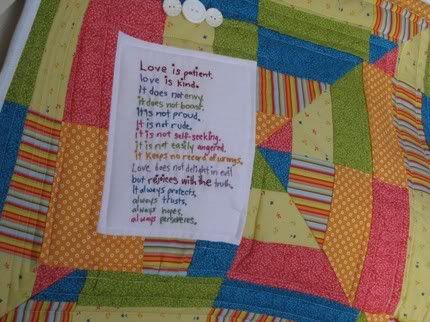 Love is patient,
love is kind.
It does not envy,
it does not boast.
It is not proud.
It is not rude.
It is not self-seeking.
it is not easily angered.
it keeps no record of wrongs.
Love does not delight in evil
but rejoices with the truth.
It always protects,
always trusts,
always hopes,
always perseveres.